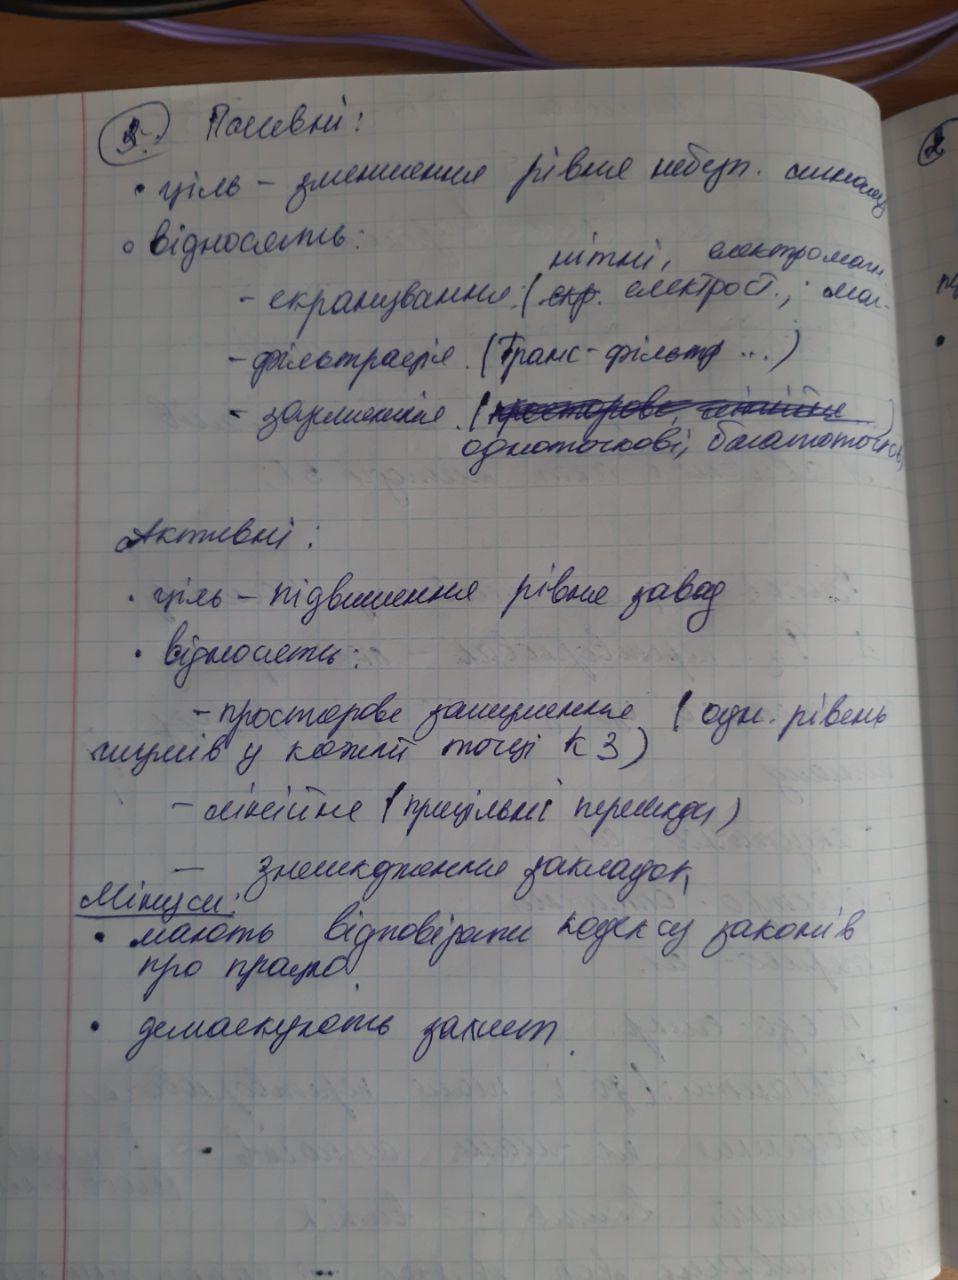 3. Пасивні:
• ціль – зменшення рівня небезп. сигналу
• відносять:
нітні, електромагн.
- екранування: (екр. електрост., маг-
- фільтрація (Транс-фільтр ...)
- заземлення (просторове, лінійне)
одноточкові, багатоточков,
Активні:
• ціль – підвишення рівня завад
• відносять:
- просторове зашумлення (одн. рівень
шумів у кожній точці КЗ)
- лінійне (прицільні перешкоди)
- знешкодження закладок
Мінуси:
• мають відповідати кодексу законів
про працю.
• демаскують захист.
2